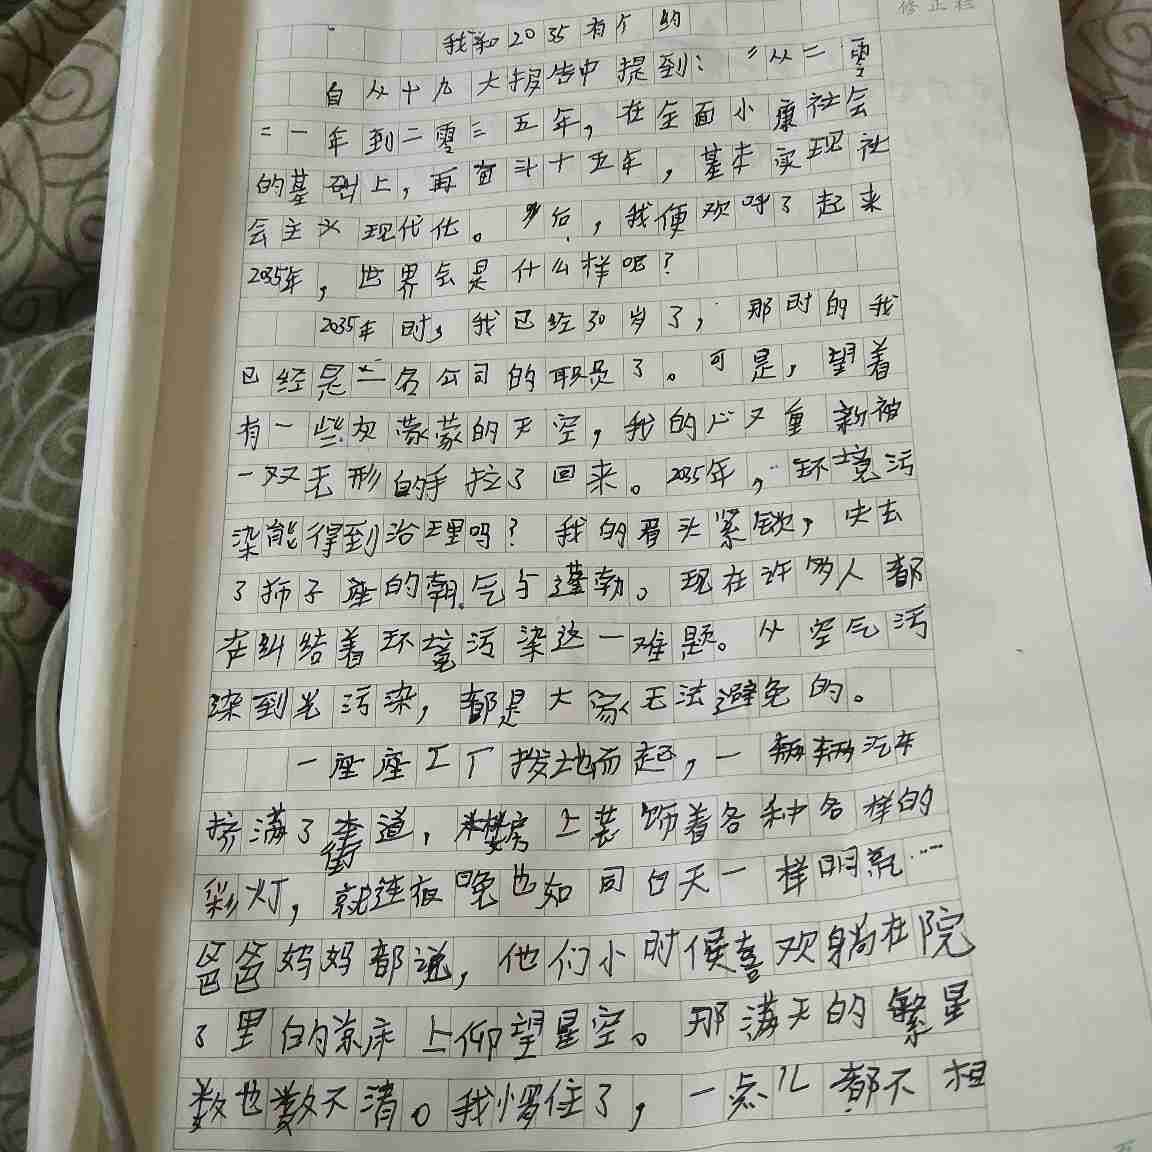 修正栏
我和2035有个约
自从十九大报告中提到：“从二零
二一年到二零三五年，在全面小康社会
的基础上，再奋斗十五年，基本实现社
会主义现代化。”后，我便欢呼了起来
2035年，世界会是什么样呢？
2035年时，我已经30岁了，那时的我
已经是一名公司的职员了。可是，望着
有一些灰蒙蒙的天空，我的心又重新被
一双无形的手拉了回来。2035年，环境污
染能得到治理吗？我的眉头紧锁，失去
了狮子座的朝气与蓬勃。现在许多人都
在纠结着环境污染这一难题。从空气污
染到光污染，都是大家无法避免的。
一座座工厂拨地而起，一辆辆汽车
挤满了街道，楼房上装饰着各种各样的
彩灯，就连夜晚也如同白天一样明亮…
爸爸妈妈都说，他们小时候喜欢躺在院
了里的凉床上仰望星空。那满天的繁星
数也数不清。我愣住了，一点儿都不相